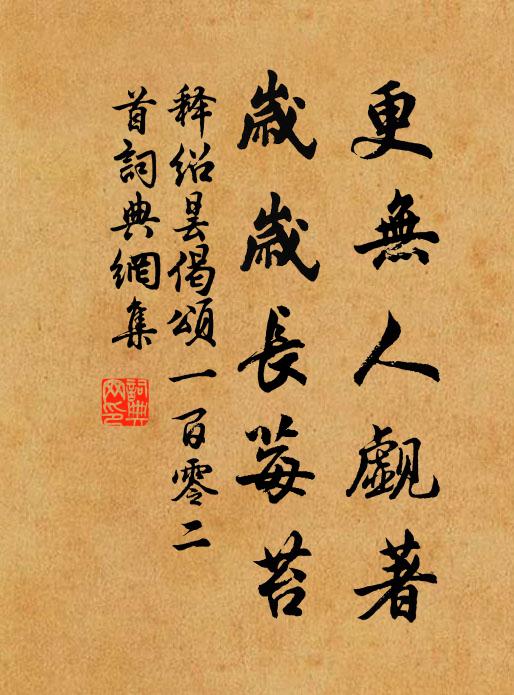 更無人覰著
歲歲長莓苔
釋紹曇偈頌一百零二
首詞典網集
詞典网印